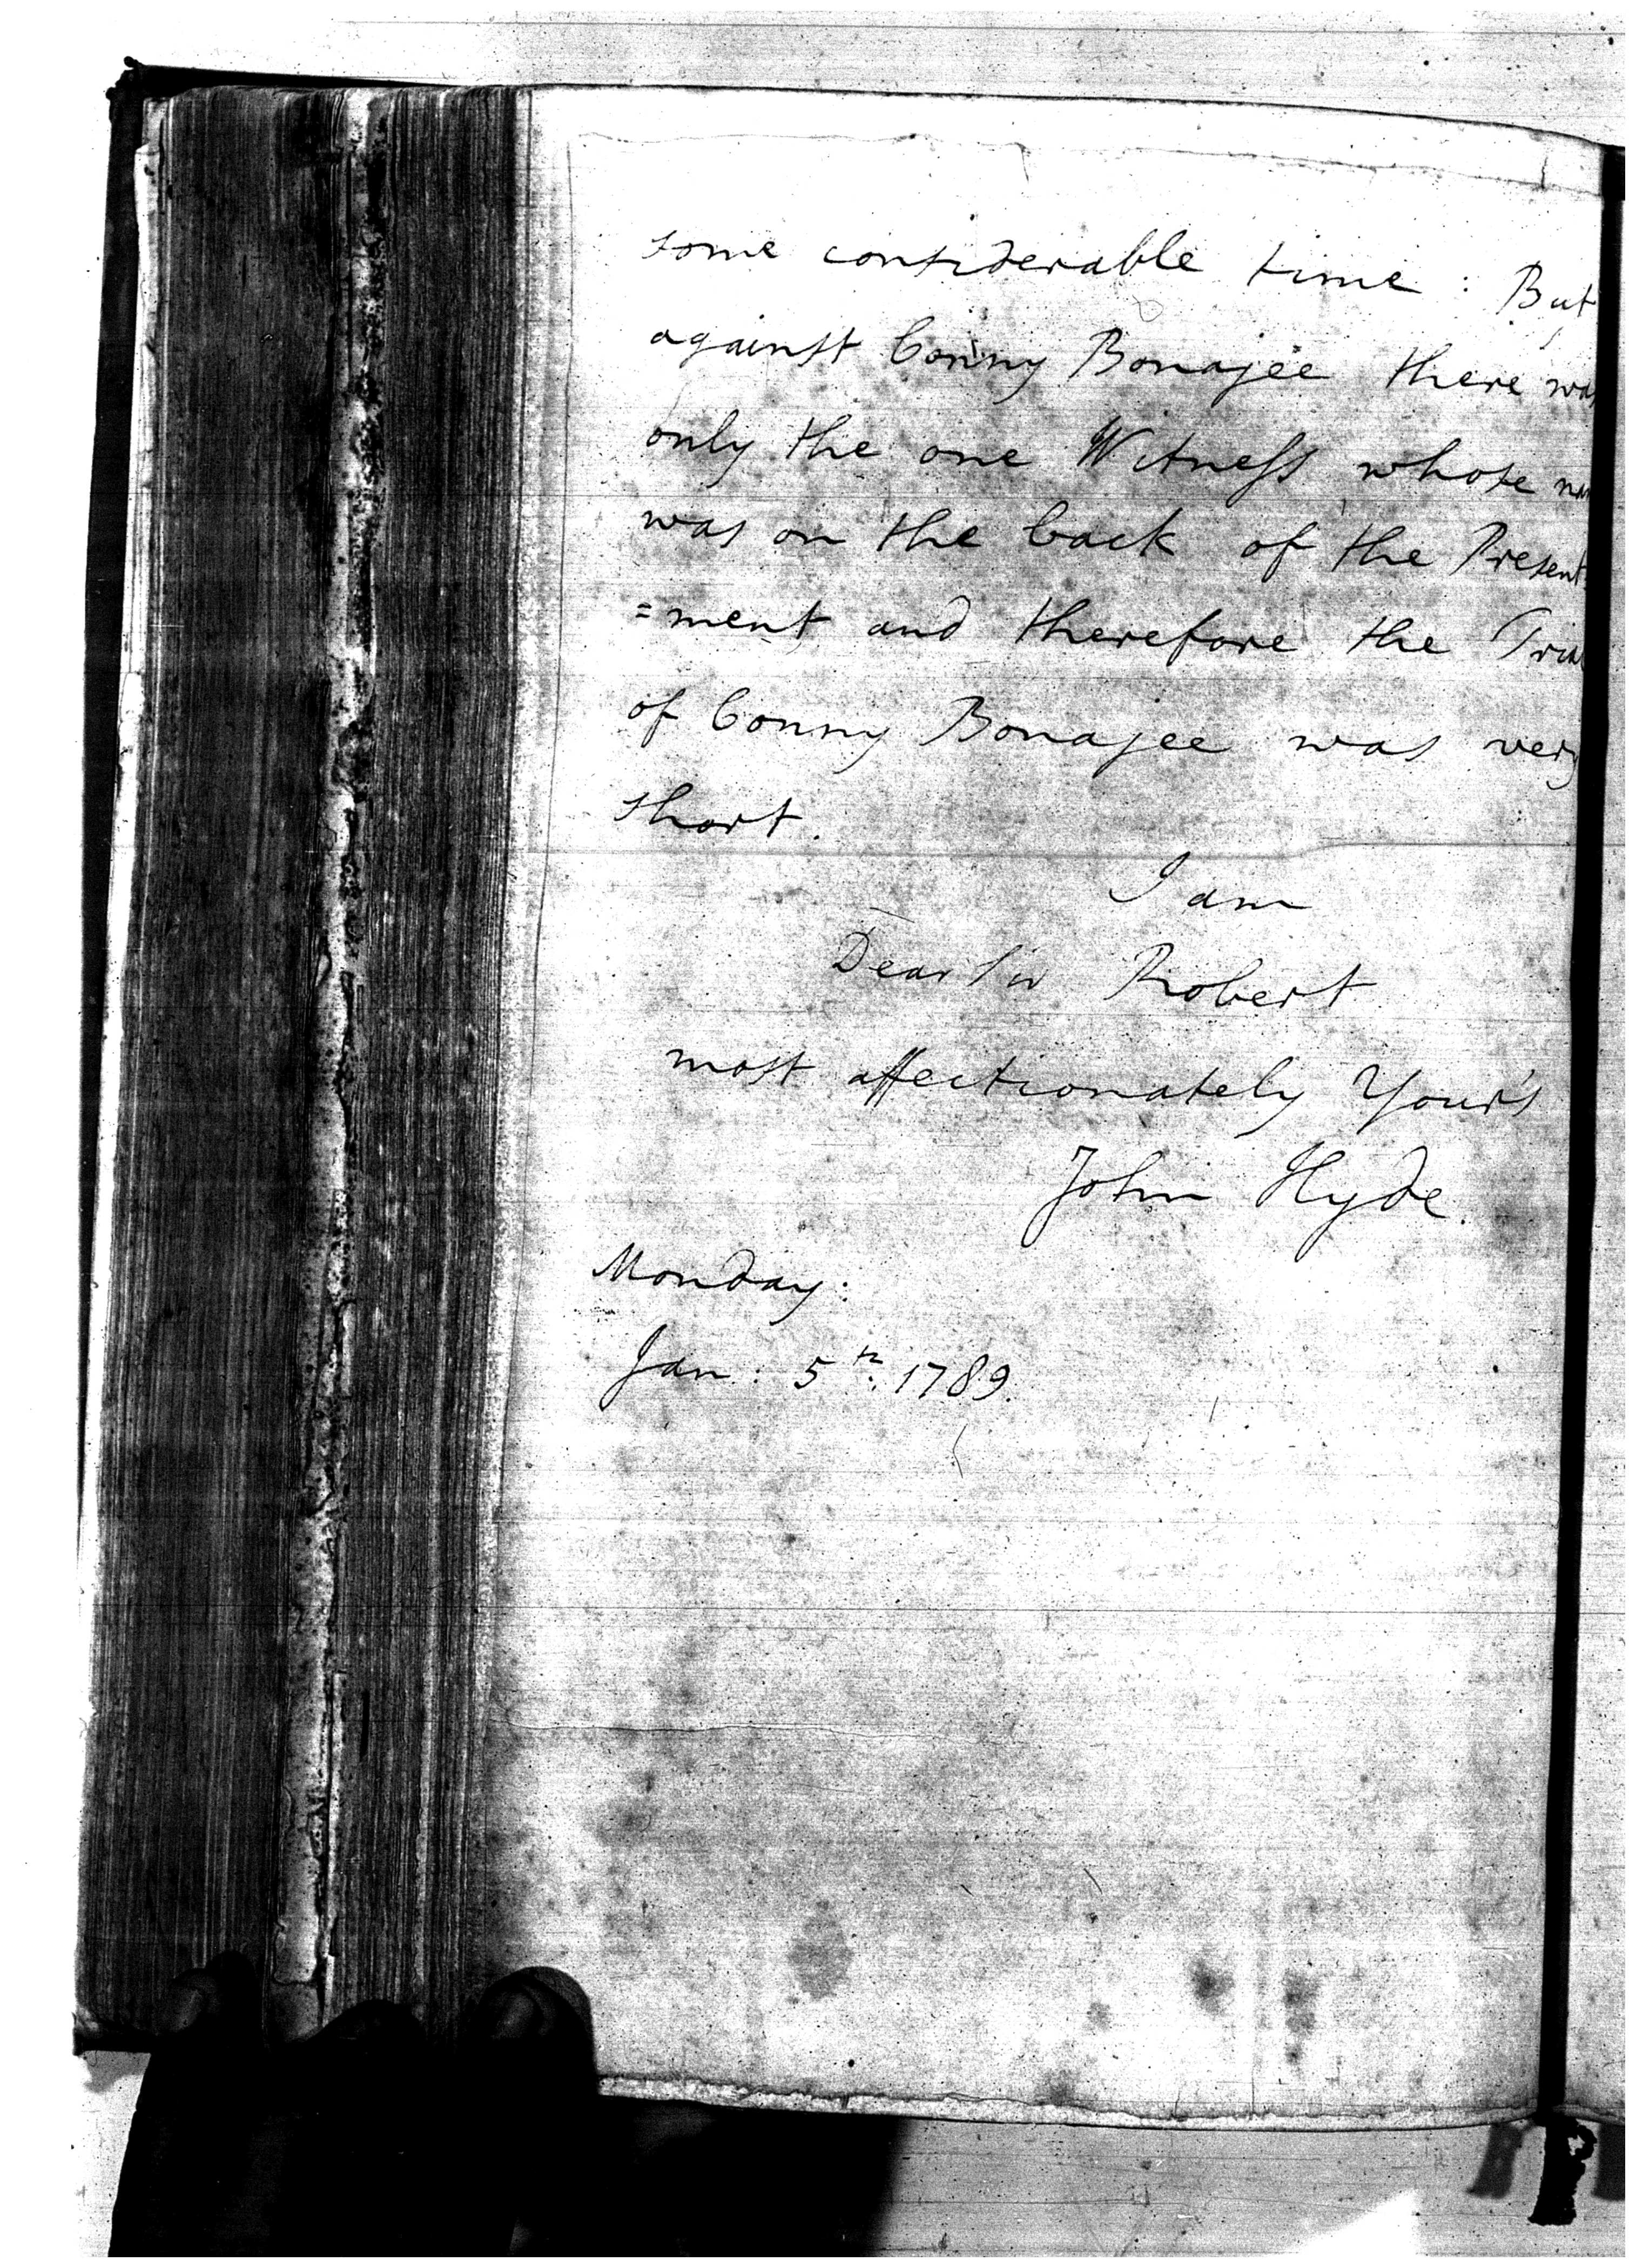 some considerable time : But
against Conny Bonajee there was
only the one Witness whose
was on the back of the Present
=ment and therefore the Tria
of Conny Bonajee was very
short.
I am
Dear Sir Robert
most affectionately Your's
John Hyde.
Monday:
Jan: 5th. 1789.